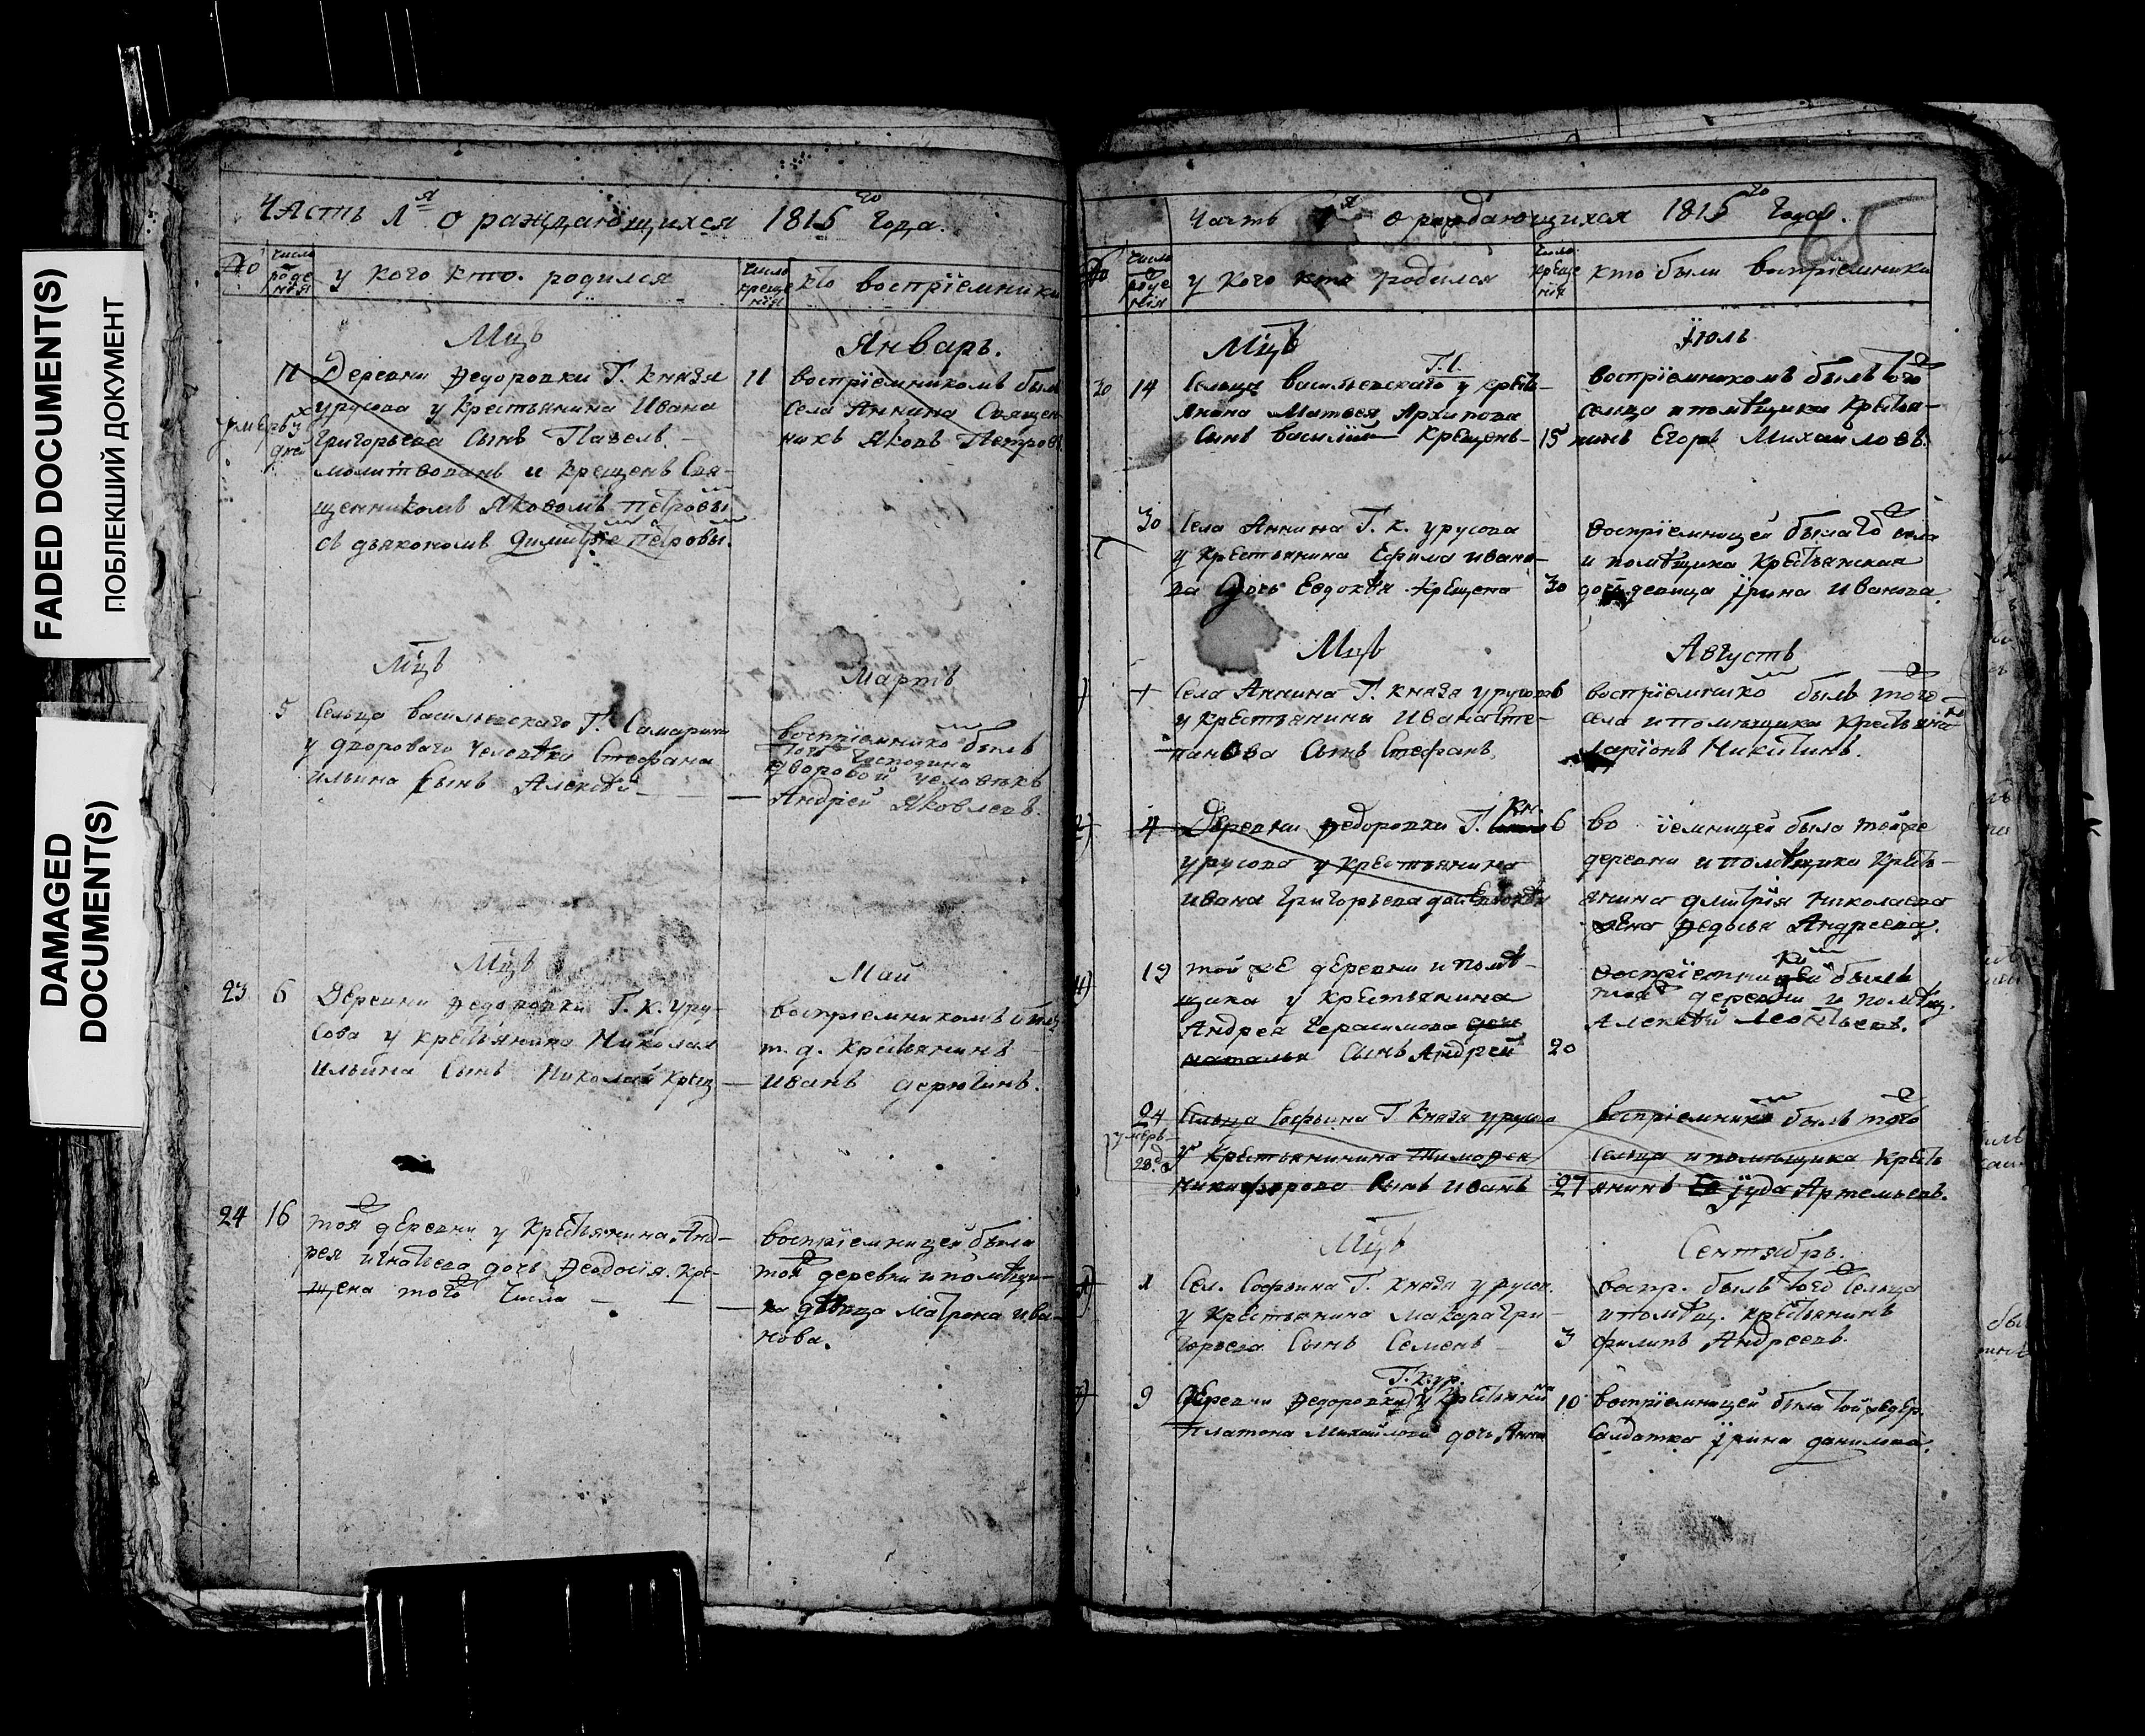 FADED DOCUMENT(S)
ПОБЛЕКШИЙ ДОКУМЕНТ
DAMAGED
DOCUMENT(S)
Часть 1я о раждающихся 1815го года.
No
число рожде нїя
у кого кто родился
число креще нїя
кто воспрїемники
Мцъ Январь.
11 Деревни Федоровки Г. Князя
урусова у крестьянина Ивана
Григорьева сынъ Павелъ.
молитвованъ и крещенъ Свя-
щенникомъ Яковомъ Петровы
съ дьякономъ Димитрїе Петровы.
11 воспрїемникомъ былъ
села Аннина Священ
никъ Яковъ Петров
Мцъ Мартъ
5 Сельца васильевскаго Г. Самарина
у двороваго человека Стефана
ильина сынъ Алексѣй
воспрїемнико былъ
того Господина
дворовой человѣкъ
Андрей Яковлевъ.
Мцъ Май
23 6 Деревни Федоровки Г. К. Уру-
сова у крестьянина Николая
Ильина сынъ Николай крещ
воспрїемникомъ былъ
т. д. крестьянинъ
иванъ
24 16 той деревни у крестьянина Анд-
рея игнатьева дочь Феодосїя. кре-
щена того числа
воспрїемницей была
той деревни и помѣщи-
ка дѣвица Матрона ива-
нова.
Часть 1я о раждающихся 1815го года.
65
No
число рожде нїя
у кого кто родился
число креще нїя
кто были воспрїемники
Мцъ Їюль
30 14 Сельца васильевскаго у кресть-
янина Матвея Архипова
сынъ василїй крещенъ 15
воспрїемникомъ былъ того
сельца и помѣщика крестья-
нинъ Егоръ Михаиловъ.
30 Села Аннина Г. К. урусова
у крестьянина Ефима ивано-
ва дочь Евдокїя крещена 30
воспрїемницей была того села
и помѣщика крестьянская
дочь девица їрина иванова.
Мцъ Августъ
Села Аннина Г. князя урусова 6
у крестьянина Ивана Сте-
панова сынъ Стефанъ.
воспрїемнико былъ того
села и помѣщика крестьяни
Ларїонъ Никитинъ.
4 Деревни Федоровки Г. Кн 6
урусова у крестьянина
ивана Григорьева доч
во їемницей была тойже
деревни и помѣщика кресть-
янина дмитрїя николаева
жена Федосья Андреева.
19 той же деревни и помѣ-
щика у крестьянина
Андрея Герасимова
наталья сынъ Андрей 20
воспрїемни былъ
той деревни и помѣщ.
Алексѣй Леонтьевъ.
24 Сельца Софьина Г. Князя урусова
умеръ
28.
у крестьянинина Тимофея
никифорова сынъ иванъ 27
воспрїемнико былъ того
сельца и помѣщика кресть
янинъ їуда Артемьевъ.
Мцъ Сентябрь.
1 Сел. Софьина Г. князя урусов.
у крестьянина макара гри-
горьева сынъ Семенъ 3
воспр. былъ того сельца
и помѣщ. крестьянинъ
филипъ Андреевъ.
Г. К. ур.
9 Деревни Федоровки у крестьянина
Платона Михайлова дочь Анна
10 воспрїемницей была тойже дер.
Салдатка їрина данилова.